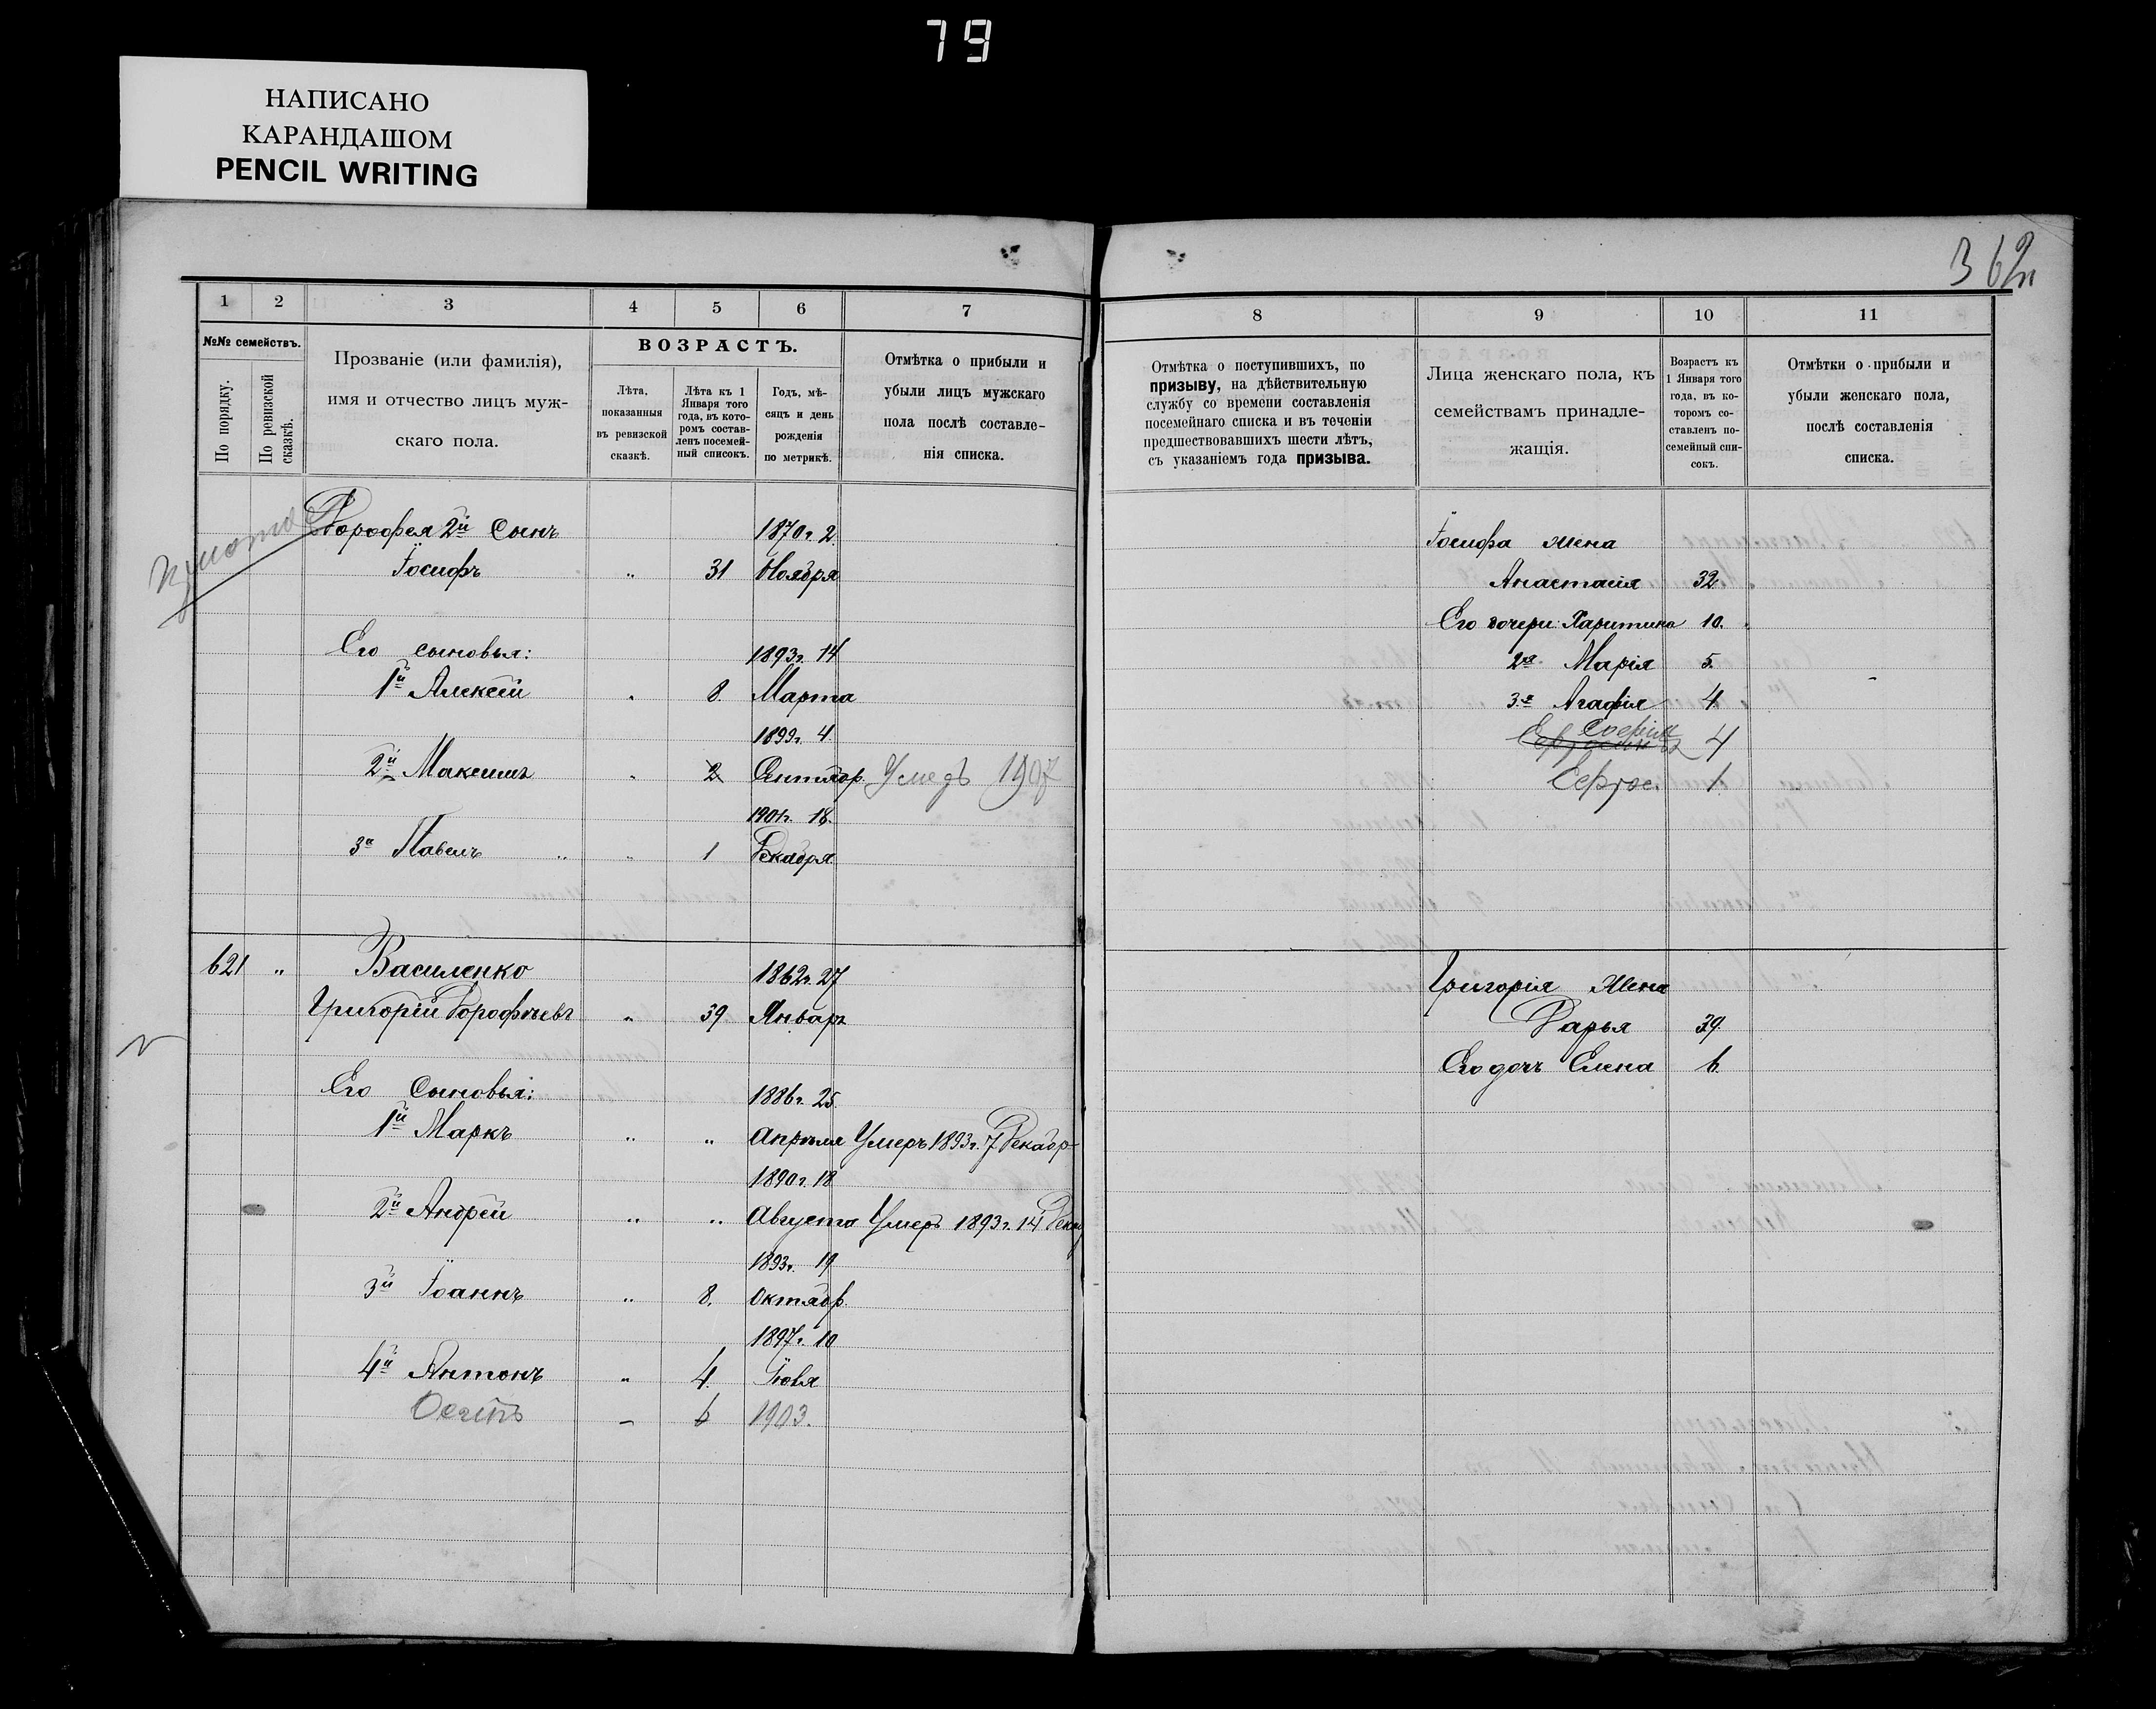 79
НАПИСАНО
КАРАНДАШОМ
PENCIL WRITING
362
1 2 3 4 5 6 7
№№ семействъ.
По порядку.
По ревизской сказкѣ.
Прозваніе (или фамилія),
имя и отчество лицъ муж-
скаго пола.
ВОЗРАСТЪ.
Лѣта,
показанныя
въ ревизской
сказкѣ.
Лѣта къ 1
Января того
года, въ кото-
ромъ состав-
ленъ посемей-
ный списокъ.
Годъ, мѣ-
сяцъ и день
рожденія
по метрикѣ.
Отмѣтка о прибыли и
убыли лицъ мужскаго
пола послѣ составле-
нія списка.
Дорофея 2й Сынъ 1870 г. 2
Іосифъ " 31 Ноября
Его сыновья: 1893 г. 14
1й Алексѣй " 8. Марта
1899 г. 4.
2й Максимъ " 2 Сентябр. Умеръ 1907
1901 г. 18.
3й Павелъ " 1 Декабря
621 " Василенко 1862 г. 27
Григорій Дорофѣевъ " 39 Январ
Его Сыновья: 1886 г. 25.
1й Маркъ " " Апрѣля Умеръ 1893 г. 7 Декабр
1890 г. 18
2й Андрей " " Августа Умеръ 1893 г. 14 Декаб
1893 г. 19
3й Іоаннъ " 8. Октябр.
1897 г. 10
4й Антонъ " 4. Іюля
Осипъ – 6 1903.
8 9 10 11
Отмѣтка о поступившихъ, по
призыву, на дѣйствительную
службу со времени составленія
посемейнаго списка и въ теченіи
предшествовавшихъ шести лѣтъ,
съ указаніемъ года призыва.
Лица женскаго пола, къ
семействамъ принадле-
жащія.
Возрастъ къ
1 Января того
года, въ ко-
торомъ со-
ставленъ по-
семейный спи-
сокъ.
Отмѣтки о прибыли и
убыли женскаго пола,
послѣ составленія
списка.
Іосифа жена
Анастасія 32
Его дочери: Харитина 10.
2я Марія 5.
3я Агафія 4
Софія 4
Ефрос. 1.
Григорія Жена
Дарья 39.
Его дочь Елена 6.